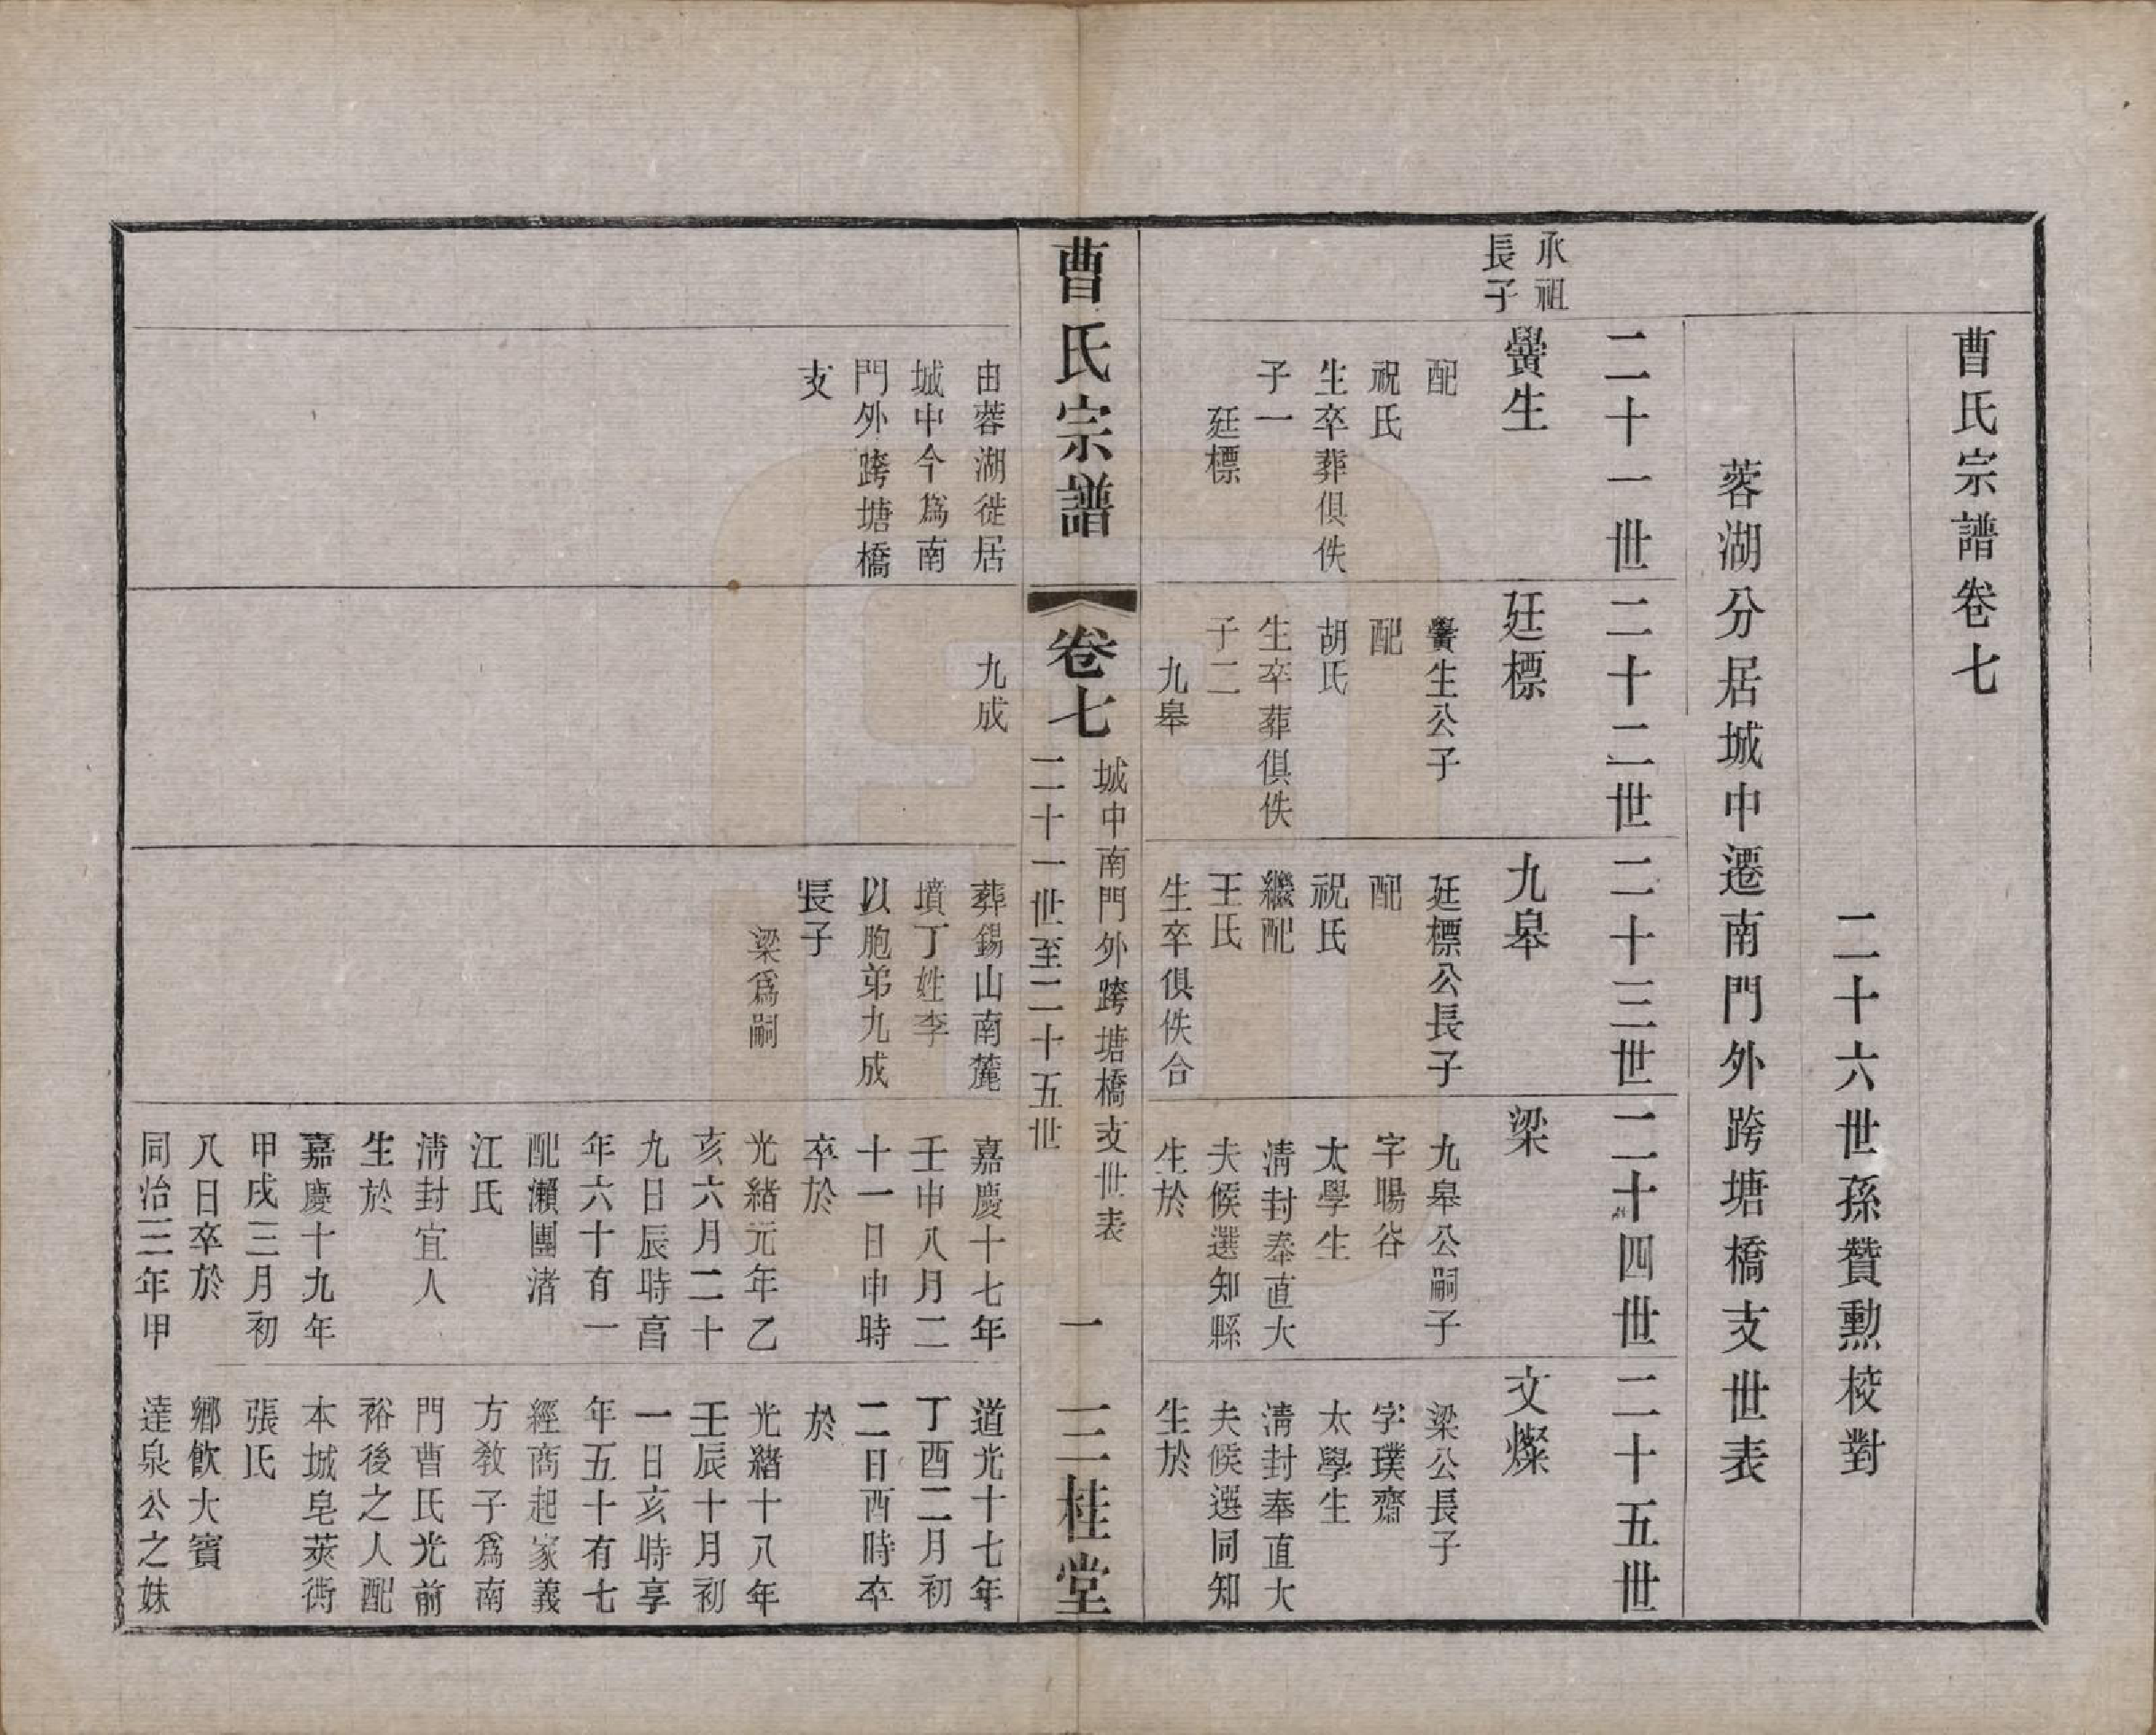 曹氏宗譜卷七
二十六世孫贊勲校對
蓉湖分居城中遷南門外跨塘橋支世表
二十一世
承祖
長子
黌生
配
祝氏
生卒葬俱佚
子一
廷標
由蓉湖徙居
城中今爲南
門外跨塘橋
支
二十二世
廷標
黌生公子
配
胡氏
生卒葬俱佚
子二
九皋
九成
二十三世
九皋
廷標公長子
配
祝氏
繼配
王氏
生卒俱佚合
葬錫山南麓
墳丁姓李
以胞弟九成
長子
梁爲嗣
二十四世
梁
九皋公嗣子
字暘谷
太學生
淸封奉直大
夫候選知縣
生於
嘉慶十七年
壬申八月二
十一日申時
卒於
光緒元年乙
亥六月二十
九日辰時亯
年六十有一
配瀨團渚
江氏
淸封宜人
生於
嘉慶十九年
甲戌三月初
八日卒於
同治三年甲
二十五世
文燦
梁公長子
字璞齋
太學生
淸封奉直大
夫候選同知
生於
道光十七年
丁酉二月初
二日酉時卒
於
光緖十八年
壬辰十月初
一日亥時享
年五十有七
經商起家義
方敎子爲南
門曹氏光前
裕後之人配
本城皂莢衖
張氏
鄉飮大賓
達泉公之妹
曹氏宗譜
卷七
城中南門外跨塘橋支世表
二十一世至二十五世
一
三桂堂